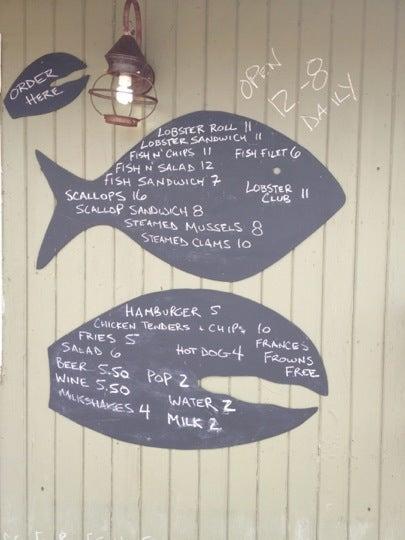 ORDER
HERE
OPEN
12-8
DAILY
LOBSTER ROLL 11
LOBSTER SANDWICH 11
FISH N' CHIPS 11
FISH FILET 6
FISH N' SALAD 12
FISH SANDWICH 7
LOBSTER
CLUB 11
SCALLOPS 16
SCALLOP SANDWICH 8
STEAMED MUSSELS 8
STEAMED CLAMS 10
HAMBURGER 5
CHICKEN TENDERS + CHIPS 10
FRIES 5
HOT DOG 4
FRANCES
FROWNS
FREE
SALAD 6
BEER 5.50
POP 2
WINE 5.50
WATER 2
MILKSHAKES 4
MILK 2